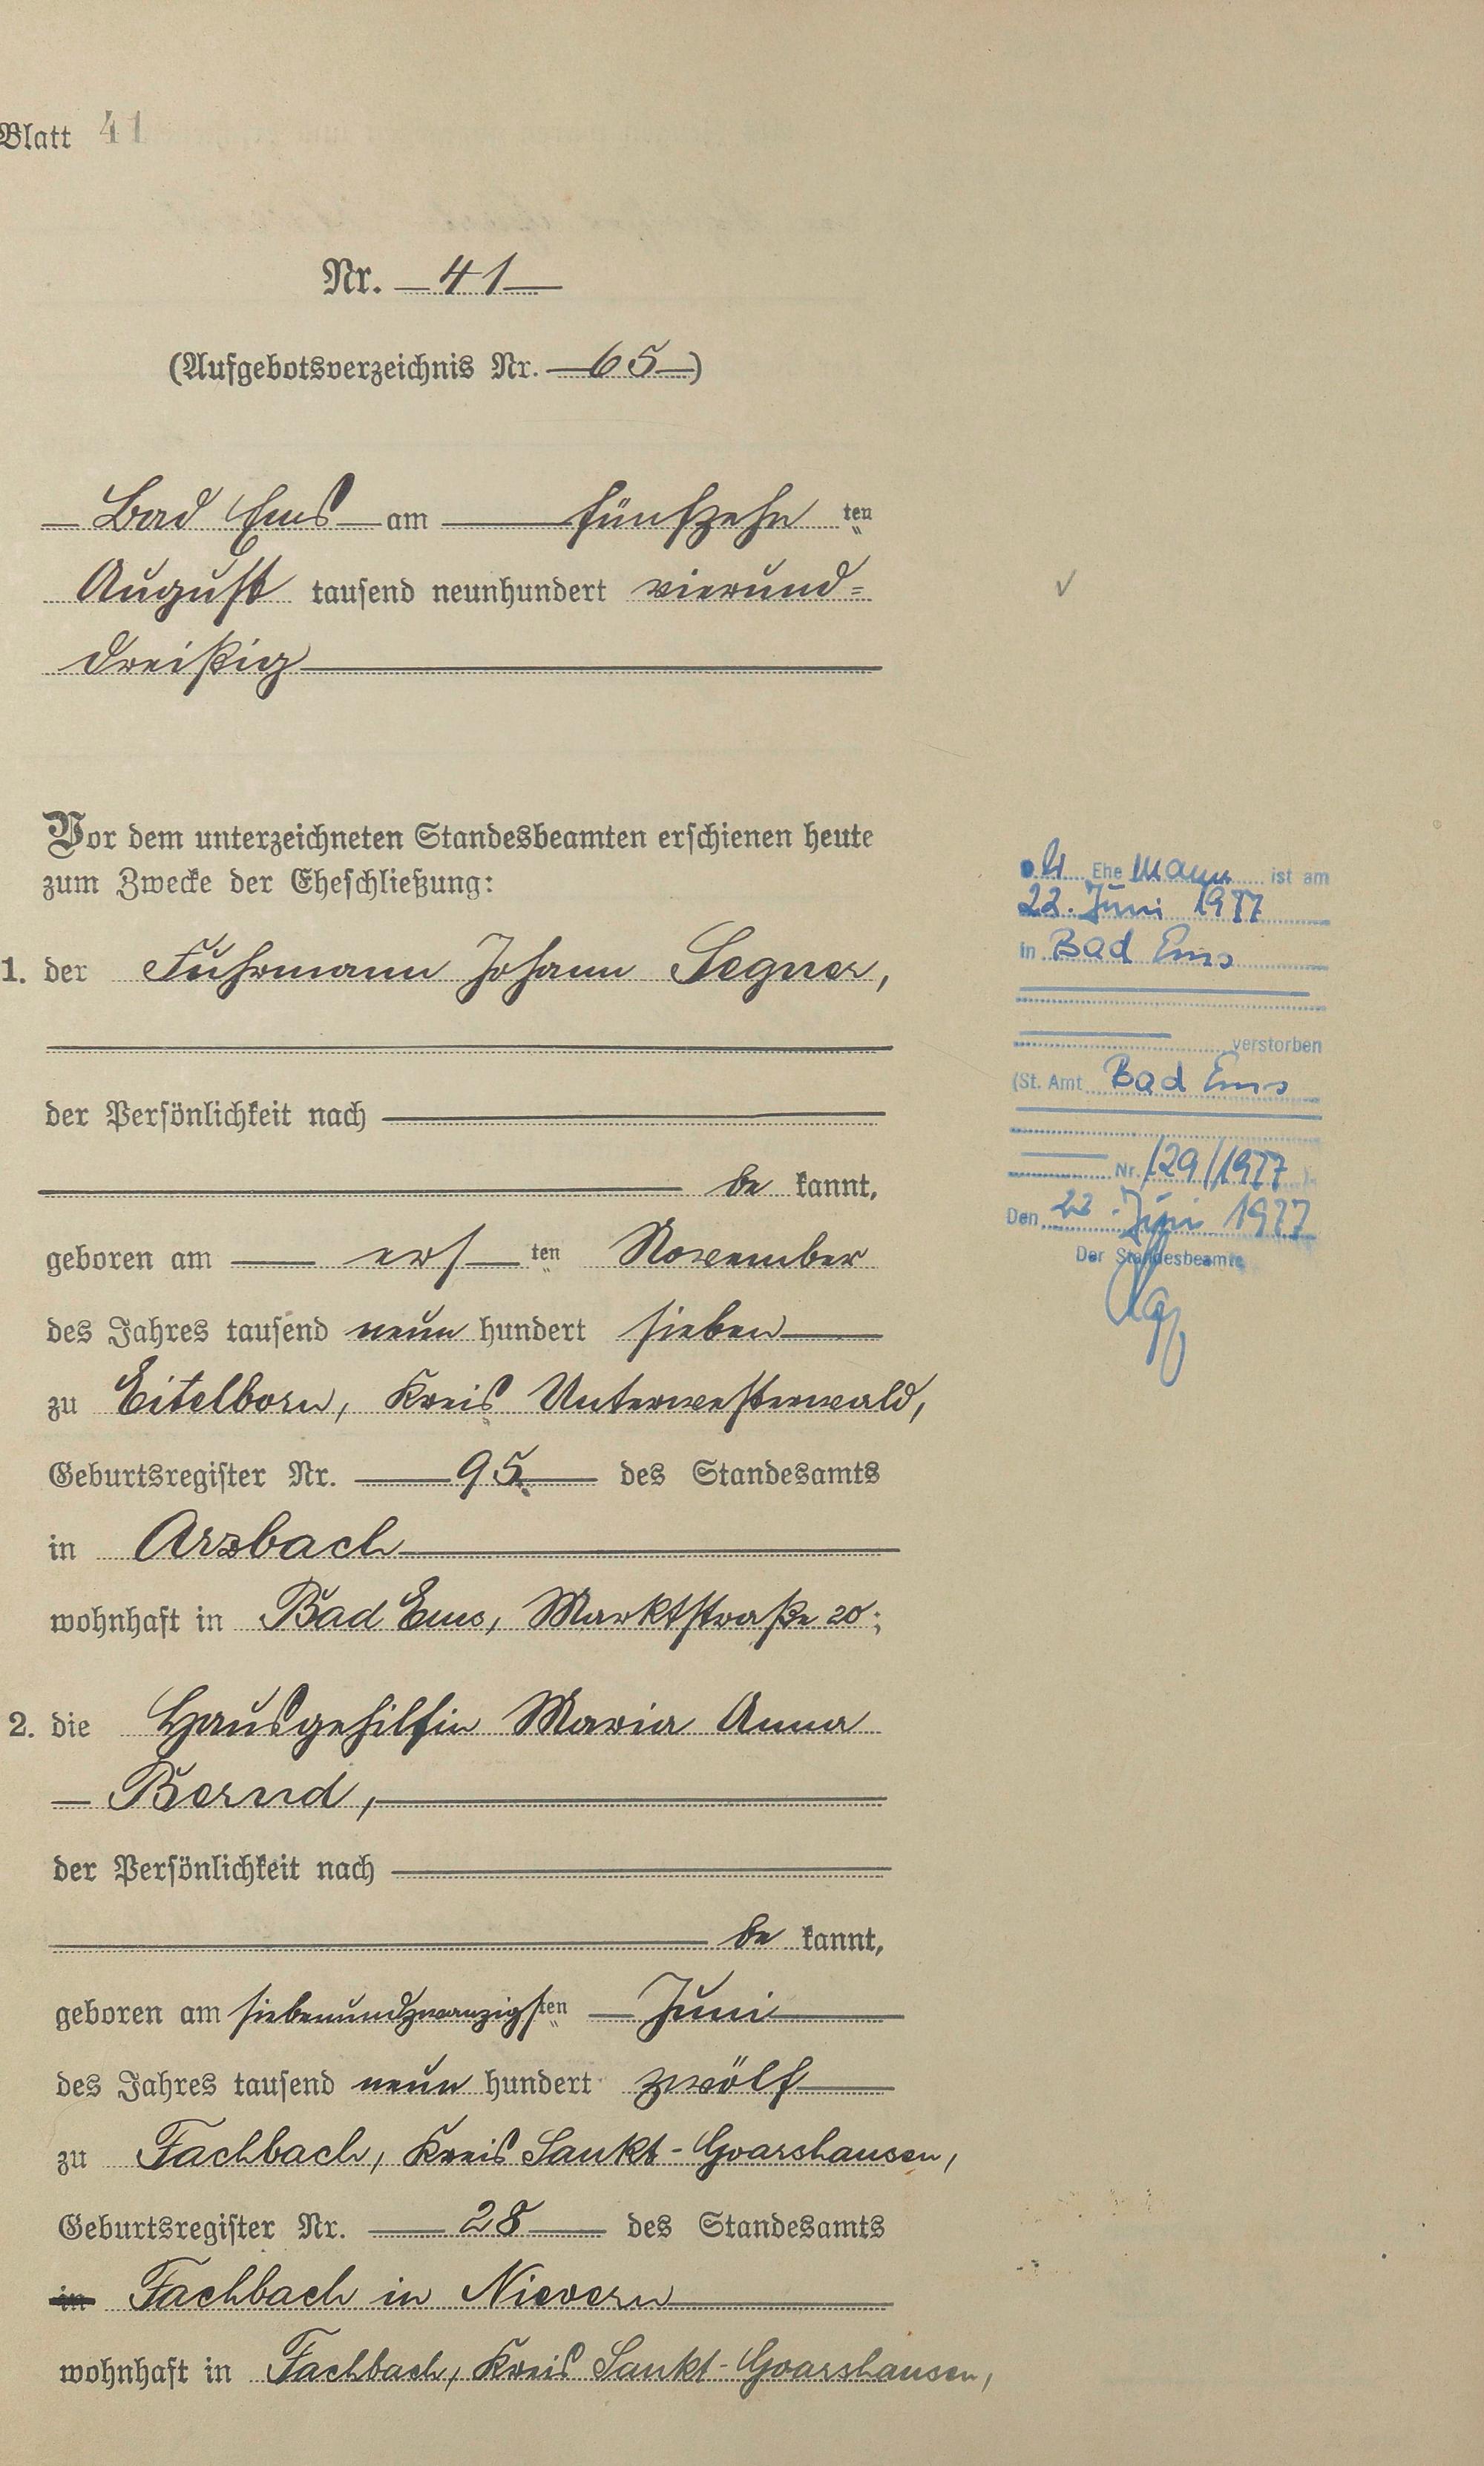 Blatt 41
Nr. 41
(Aufgebotsverzeichnis Nr. 65)
Bad Ems am fünfzehn ten
August tausend neunhundert vierund=
dreißig
Vor dem unterzeichneten Standesbeamten erschienen heute
zum Zwecke der Eheschließung:
1. der Fuhrmann Johann Segner,
der Persönlichkeit nach
be kannt,
geboren am erst ten November
des Jahres tausend neun hundert sieben
zu Eitelborn, Kreis Unterwesterwald,
Geburtsregister Nr. 95 des Standesamts
in Arzbach
wohnhaft in Bad Ems, Marktstraße 20;
2. die Hausgehilfin Maria Anna
Bernd,
der Persönlichkeit nach
be kannt,
geboren am siebenundzwanzigsten Juni
des Jahres tausend neun hundert zwölf
zu Fachbach, Kreis Sankt-Goarshausen,
Geburtsregister Nr. 28 des Standesamts
in Fachbach in Nievern
wohnhaft in Fachbach, Kreis Sankt-Goarshausen,
Ehe mann ist am
22. Juni 1977
in Bad Ems
verstorben
(St. Amt Bad Ems
Nr. 129/1977)
Den 22. Juni 1977
Der Standesbeamte